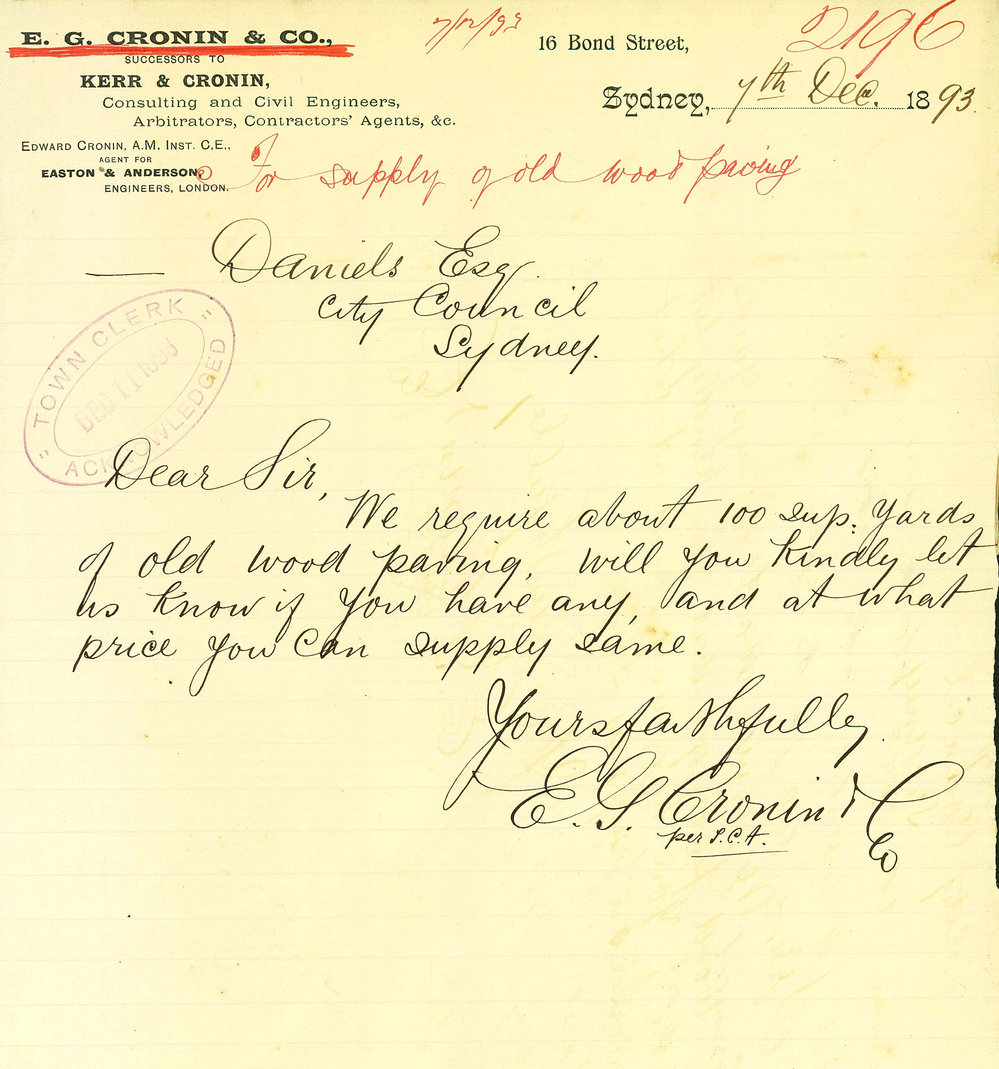 E. G. CRONIN & CO.,
SUCCESSORS TO
KERR & CRONIN,
Consulting and Civil Engineers,
Arbitrators, Contractors' Agents, &c.
EDWARD CRONIN, A.M. INST. C.E.,
AGENT FOR
EASTON & ANDERSON,
ENGINEERS, LONDON.
7/12/93
2196
16 Bond Street,
Sydney, 7th Dec. 1893
For supply of old wood paving
Daniels Esq.
City Council
Sydney.
TOWN CLERK
DEC 11 1893
ACKNOWLEDGED
Dear Sir,
We require about 100 sup. yards
of old wood paving, will you kindly let
us know if you have any, and at what
price you can supply same.
Yours faithfully
E. G. Cronin & Co
per S.C.A.